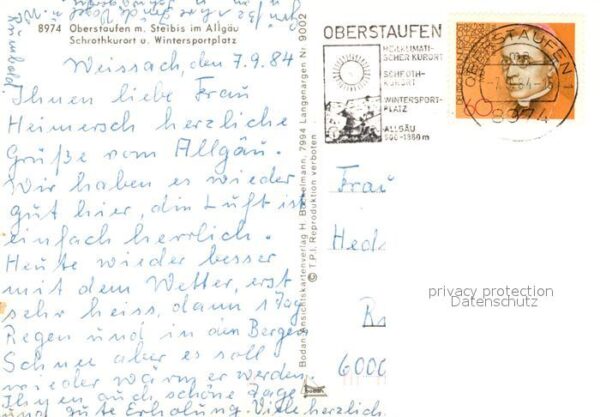 8974 Oberstaufen m. Steibis im Allgäu
Schrothkurort u. Wintersportplatz
Weissach, den 7.9.84
Ihnen liebe Frau
herzliche
Grüße vom Allgäu.
Wir haben es wieder
gut hier, die Luft ist
einfach herrlich.
Heute wieder besser
mit dem Wetter, erst
sehr heiss, dann 1 Tag
Regen und in den Bergen
Schnee aber es soll
wieder wärmer werden.
Ihnen auch schöne Tage
und gute Erholung. Viele herzlich.
Bodan-Ansichtskartenverlag H. Bockelmann, 7994 Langenargen Nr 9002
© T.P.I. Reproduktion verboten
OBERSTAUFEN
HEILKLIMATI-
SCHER KURORT
SCHROTH-
KURORT
WINTERSPORT-
PLATZ
ALLGÄU
OBERSTAUFEN 1
8974
60
Frau
Hed
6000
privacy protection
Datenschutz